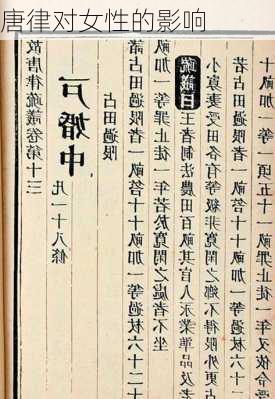 唐律对女性的影响
故唐律疏議卷第十三
戶婚中
凡一十八條
占田過限
諸占田過限者一畝笞十十畝加一等過杖六十二十
畝加一等罪止徒一年若於寬閑之處者不坐
疏議曰王者制法農田百畝其官人永業準品及老
小寡妻受田各有等級非寬閑之鄉不得限外更占
若占田過限者一畝笞十十畝加一等過杖六十二
十畝加一等一頃五十一畝罪止徒一年又依令受